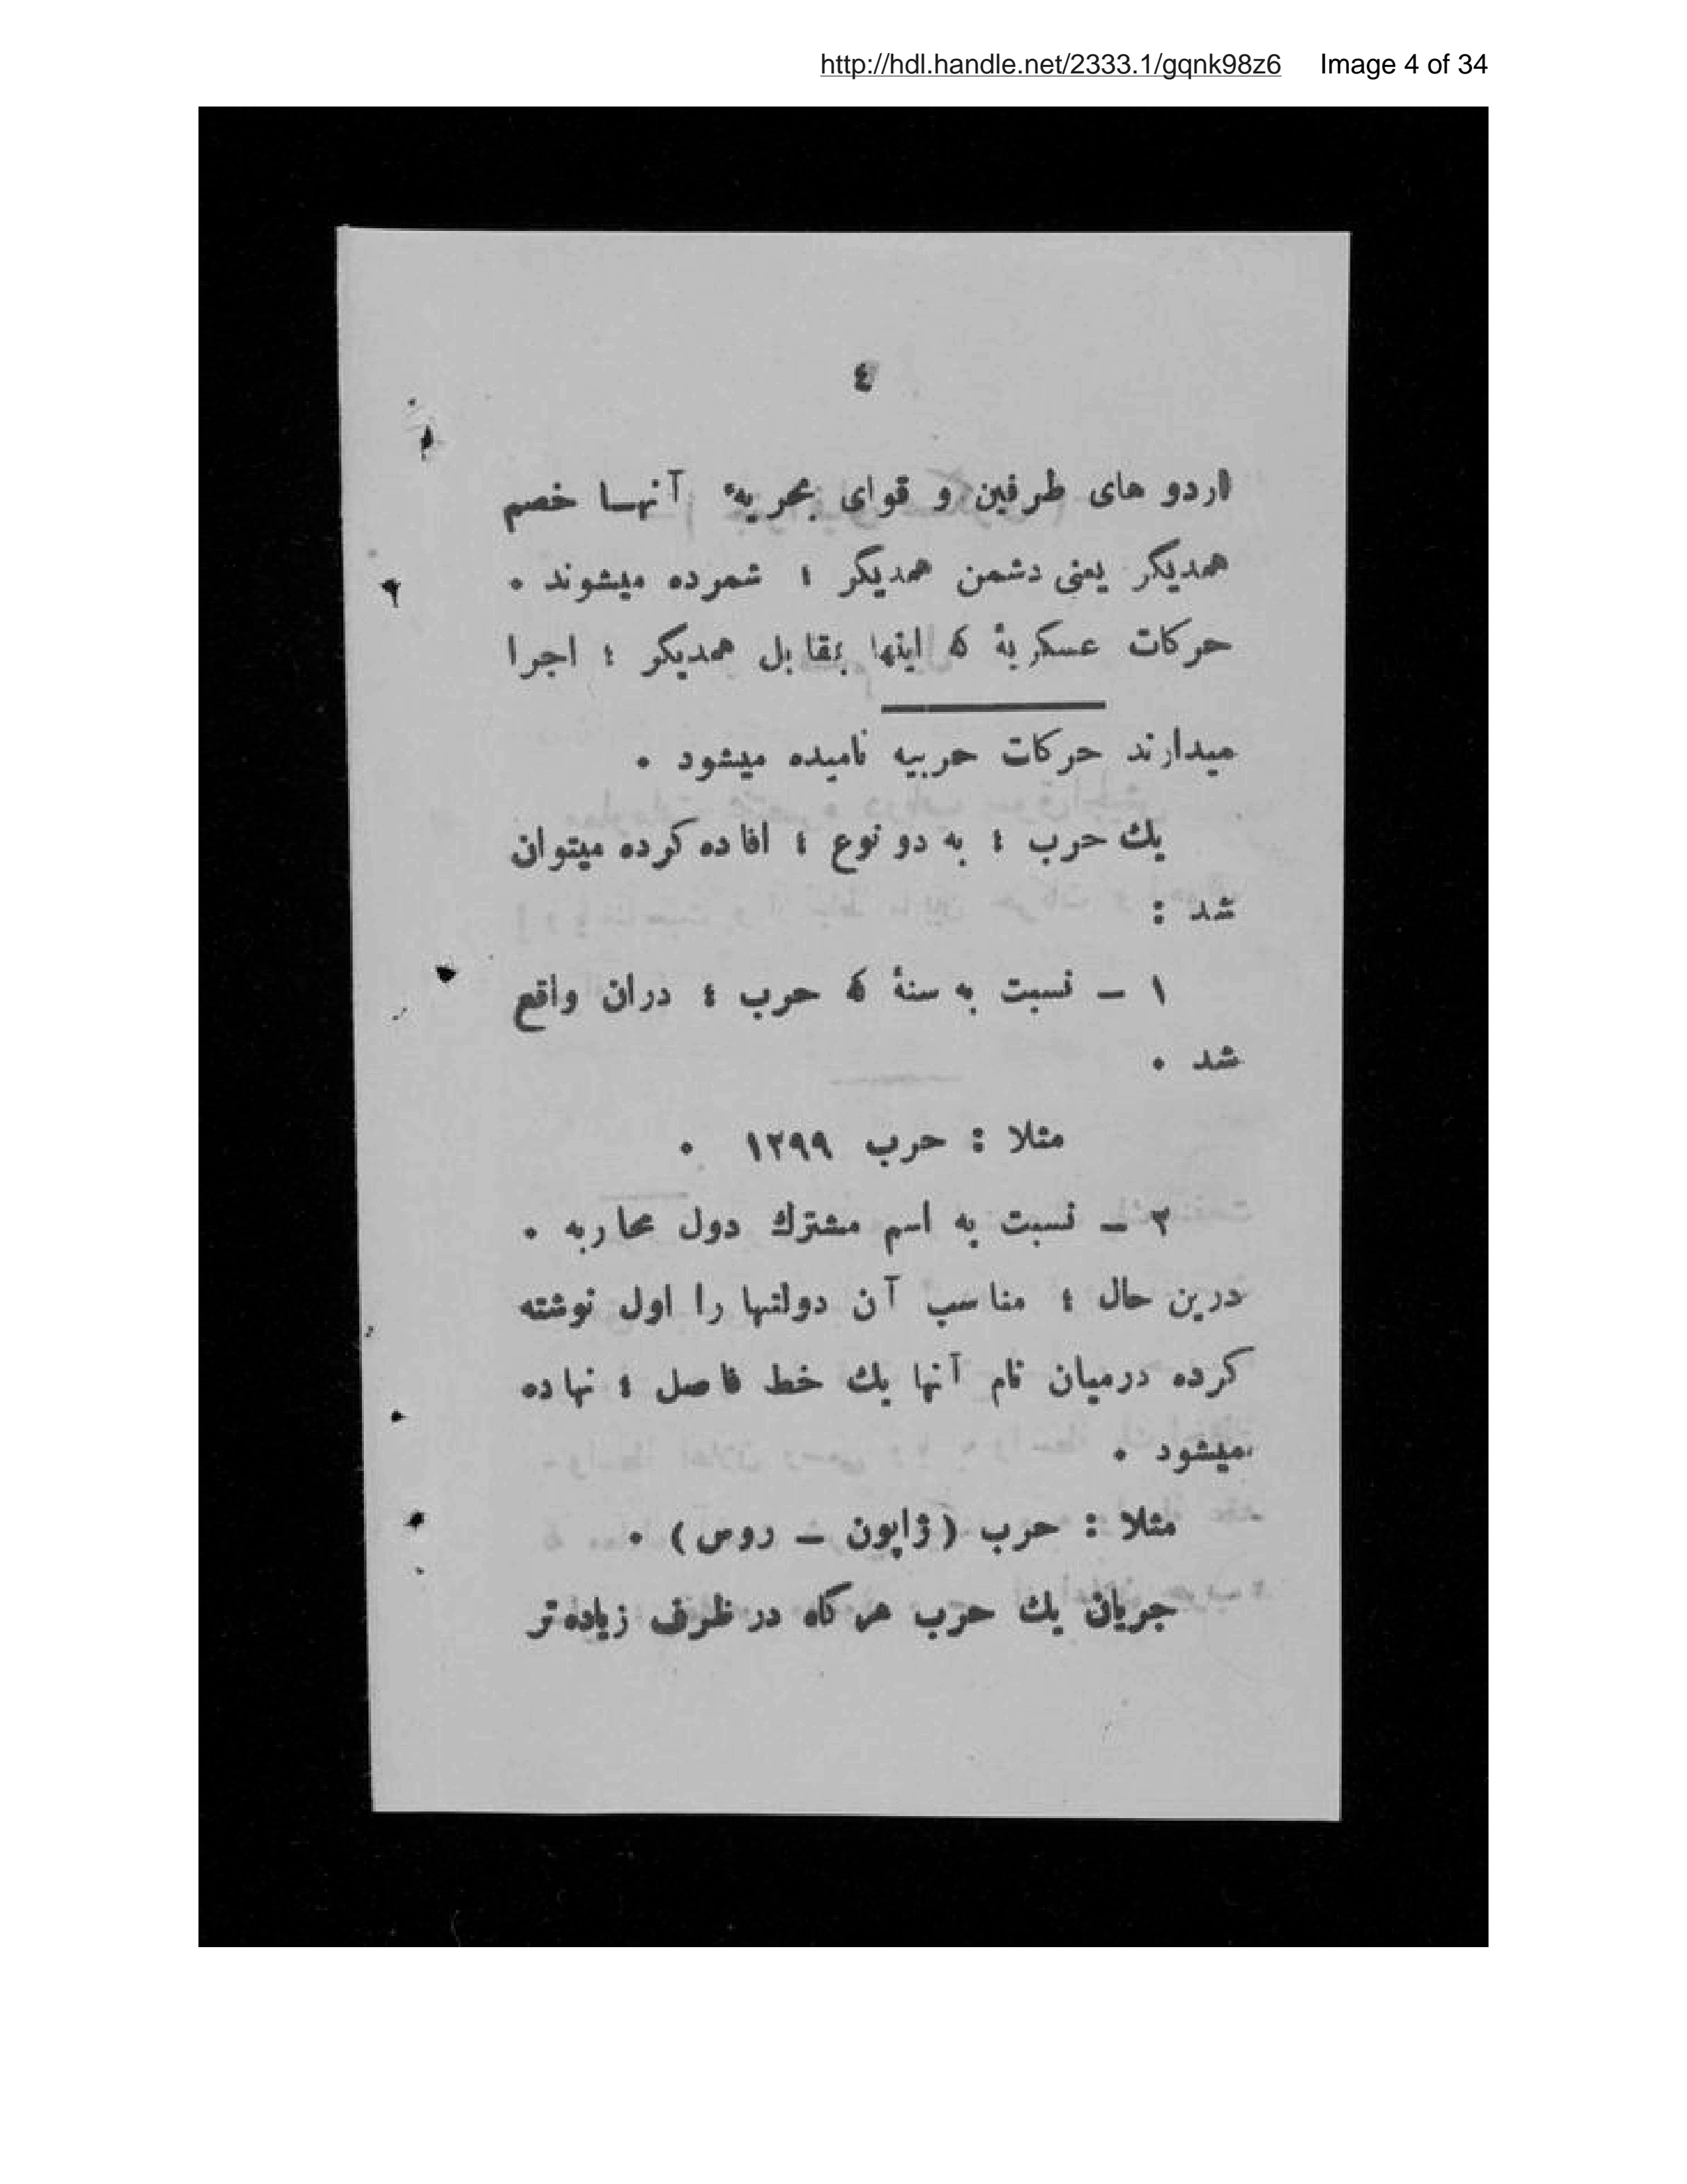 http://hdl.handle.net/2333.1/gqnk98z6 Image 4 of 34
٤
اردو های طرفین و قوای بحریهٔ آنهـا خصم
همدیکر یعنی دشمن همدیکر ؛ شمرده میشوند ۰
حرکات عسکریهٔ که اینها بمقابل همدیکر ؛ اجرا
میدارند حرکات حربیه نامیده میشود ۰
یك حرب ؛ به دو نوع ؛ افاده کرده میتوان
شد :
۱ – نسبت به سنهٔ که حرب ؛ دران واقع
شد ۰
مثلا : حرب ۱۲۹۹ ۰
۲ – نسبت به اسم مشترك دول محاربه ۰
درین حال ؛ مناسب آن دولتها را اول نوشته
کرده درمیان نام آنها یك خط فاصل ؛ نهاده
میشود ۰
مثلا : حرب (ژاپون – روس) ۰
جریان یك حرب هرکاه در ظرف زیاده تر